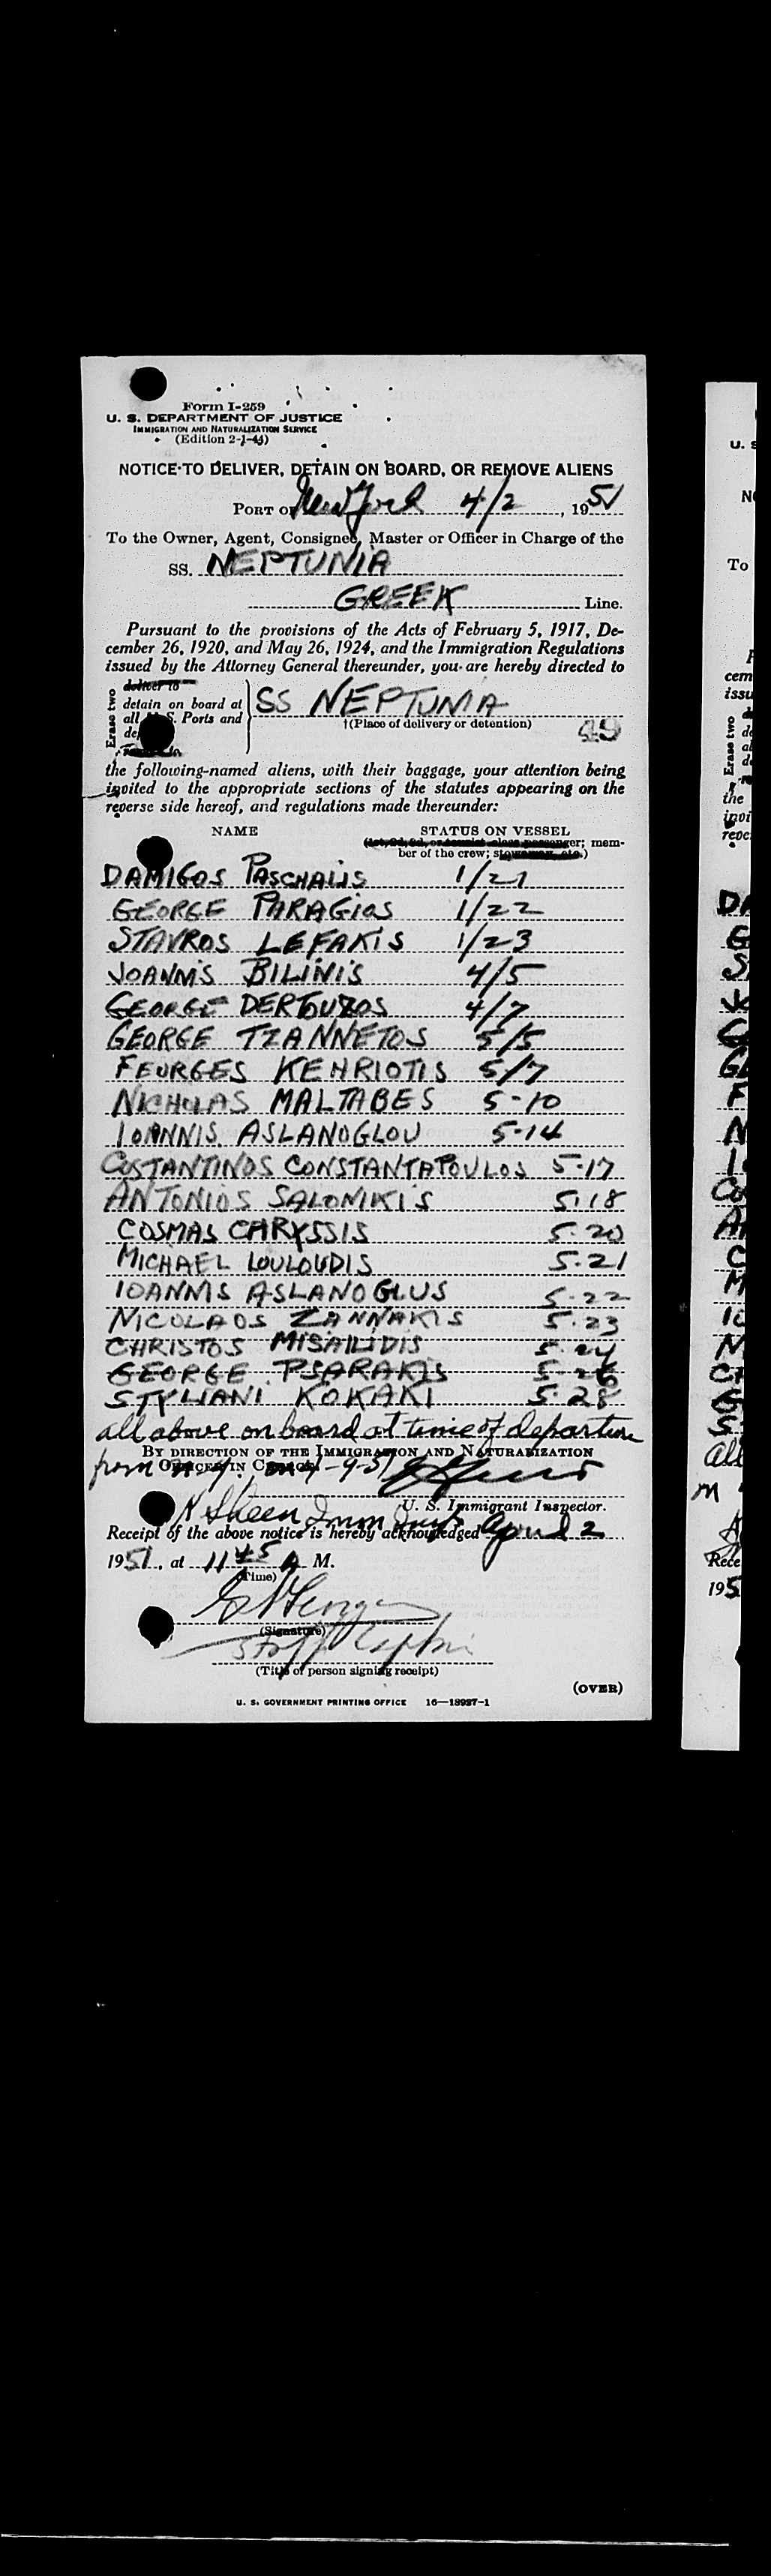 Form I-259
U. S. DEPARTMENT OF JUSTICE
IMMIGRATION AND NATURALIZATION SERVICE
(Edition 2-1-44)
NOTICE TO DELIVER, DETAIN ON BOARD, OR REMOVE ALIENS
PORT OF New York 4/2, 1951
To the Owner, Agent, Consignee, Master or Officer in Charge of the
SS. NEPTUNIA
GREEK Line.
Pursuant to the provisions of the Acts of February 5, 1917, De-
cember 26, 1920, and May 26, 1924, and the Immigration Regulations
issued by the Attorney General thereunder, you are hereby directed to
Erase two
deliver to
detain on board at
all U. S. Ports and
SS NEPTUNIA
†(Place of delivery or detention)
49
the following-named aliens, with their baggage, your attention being
invited to the appropriate sections of the statutes appearing on the
reverse side hereof, and regulations made thereunder:
NAME STATUS ON VESSEL
(1st, 2d, 3d, or tourist class passenger; mem-
ber of the crew; stowaway, etc.)
DAMIGOS PASCHALIS 1/21
GEORGE PARAGIOS 1/22
STAVROS LEFAKIS 1/23
JOANNIS BILINIS 4/5
GEORGE DERTOUZOS 4/7
GEORGE TZANNETOS 5/5
FEURGES KEHRIOTIS 5/7
NICHOLAS MALTABES 5-10
IOANNIS ASLANOGLOU 5-14
COSTANTINOS CONSTANTAPOULOS 5-17
ANTONIOS SALONIKIS 5-18
COSMAS CARYSSIS 5-20
MICHAEL LOULOUDIS 5-21
IOANNIS ASLANOGLUS 5-22
NICOLAOS ZANNAKIS 5-23
CHRISTOS MISAILIDIS 5-24
GEORGE PSARAKIS 5-26
STYLIANI KOKAKI 5-28
all above on board at time of departure
BY DIRECTION OF THE IMMIGRATION AND NATURALIZATION
from N.Y. on 4-9-51
OFFICER IN CHARGE.
U. S. Immigrant Inspector.
Receipt of the above notice is hereby acknowledged April 2
1951, at 11 45 A M.
(Time)
(Signature)
(Title of person signing receipt)
(OVER)
U. S. GOVERNMENT PRINTING OFFICE 16—18927-1